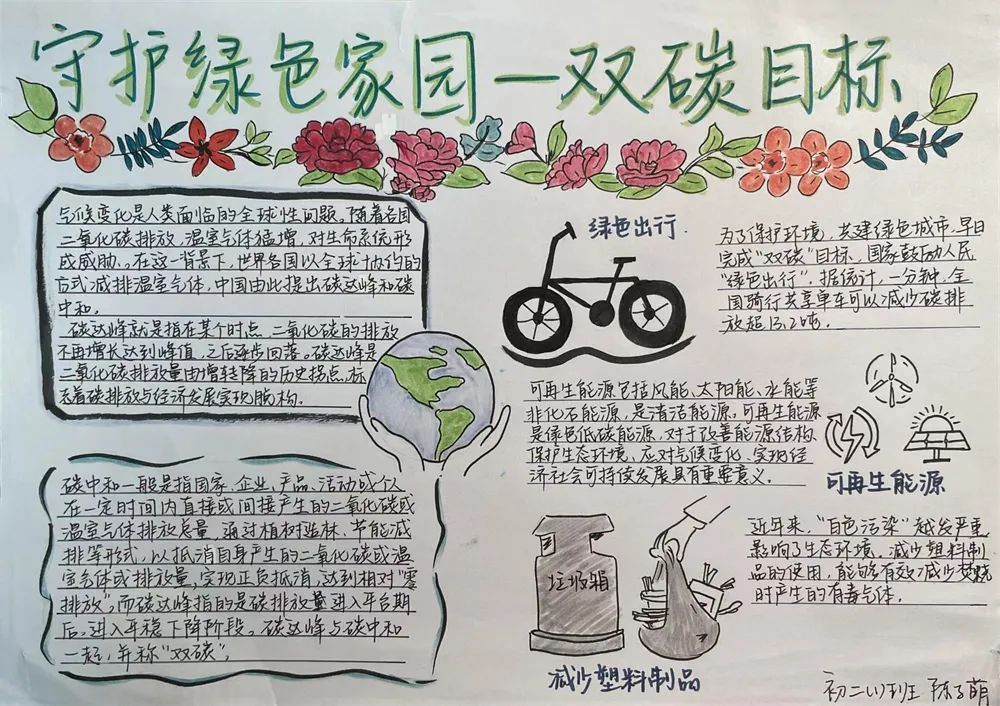 守护绿色家园一双碳目标
气候变化是人类面临的全球性问题,随着各国
二氧化碳排放,温室气体猛增,对生命系统形
成威胁。在这一背景下,世界各国以全球协约的
方式减排温室气体,中国由此提出碳达峰和碳
中和。
碳达峰就是指在某个时点,二氧化碳的排放
不再增长达到峰值,之后逐步回落。碳达峰是
二氧化碳排放量由增转降的历史拐点,标
志着碳排放与经济发展实现脱构。
碳中和一般是指国家、企业、产品、活动或个人
在一定时间内直接或间接产生的二氧化碳或
温室气体排放总量,通过植树造林、节能减
排等形式,以抵消自身产生的二氧化碳或温
室气体或排放量,实现正负抵消,达到相对"零
排放"。而碳达峰指的是碳排放量进入平台期
后,进入平稳下降阶段。碳达峰与碳中和
一起,并称"双碳"。
绿色出行.
为了保护环境,共建绿色城市,早日
完成"双碳"目标,国家鼓励人民
"绿色出行"。据统计,一分钟,全
国骑行共享单车可以减少碳排
放超13.2吨.
可再生能源包括风能、太阳能、水能等
非化石能源,是清洁能源,可再生能源
是绿色低碳能源,对于改善能源结构
保护生态环境、应对气候变化、实现经
济社会可持续发展具有重要意义.
可再生能源
垃圾箱
减少塑料制品
近年来,"白色污染"越发严重
影响了生态环境,减少塑料制
品的使用,能够有效减少焚烧
时产生的有毒气体.
初二(1)班 陈子萌